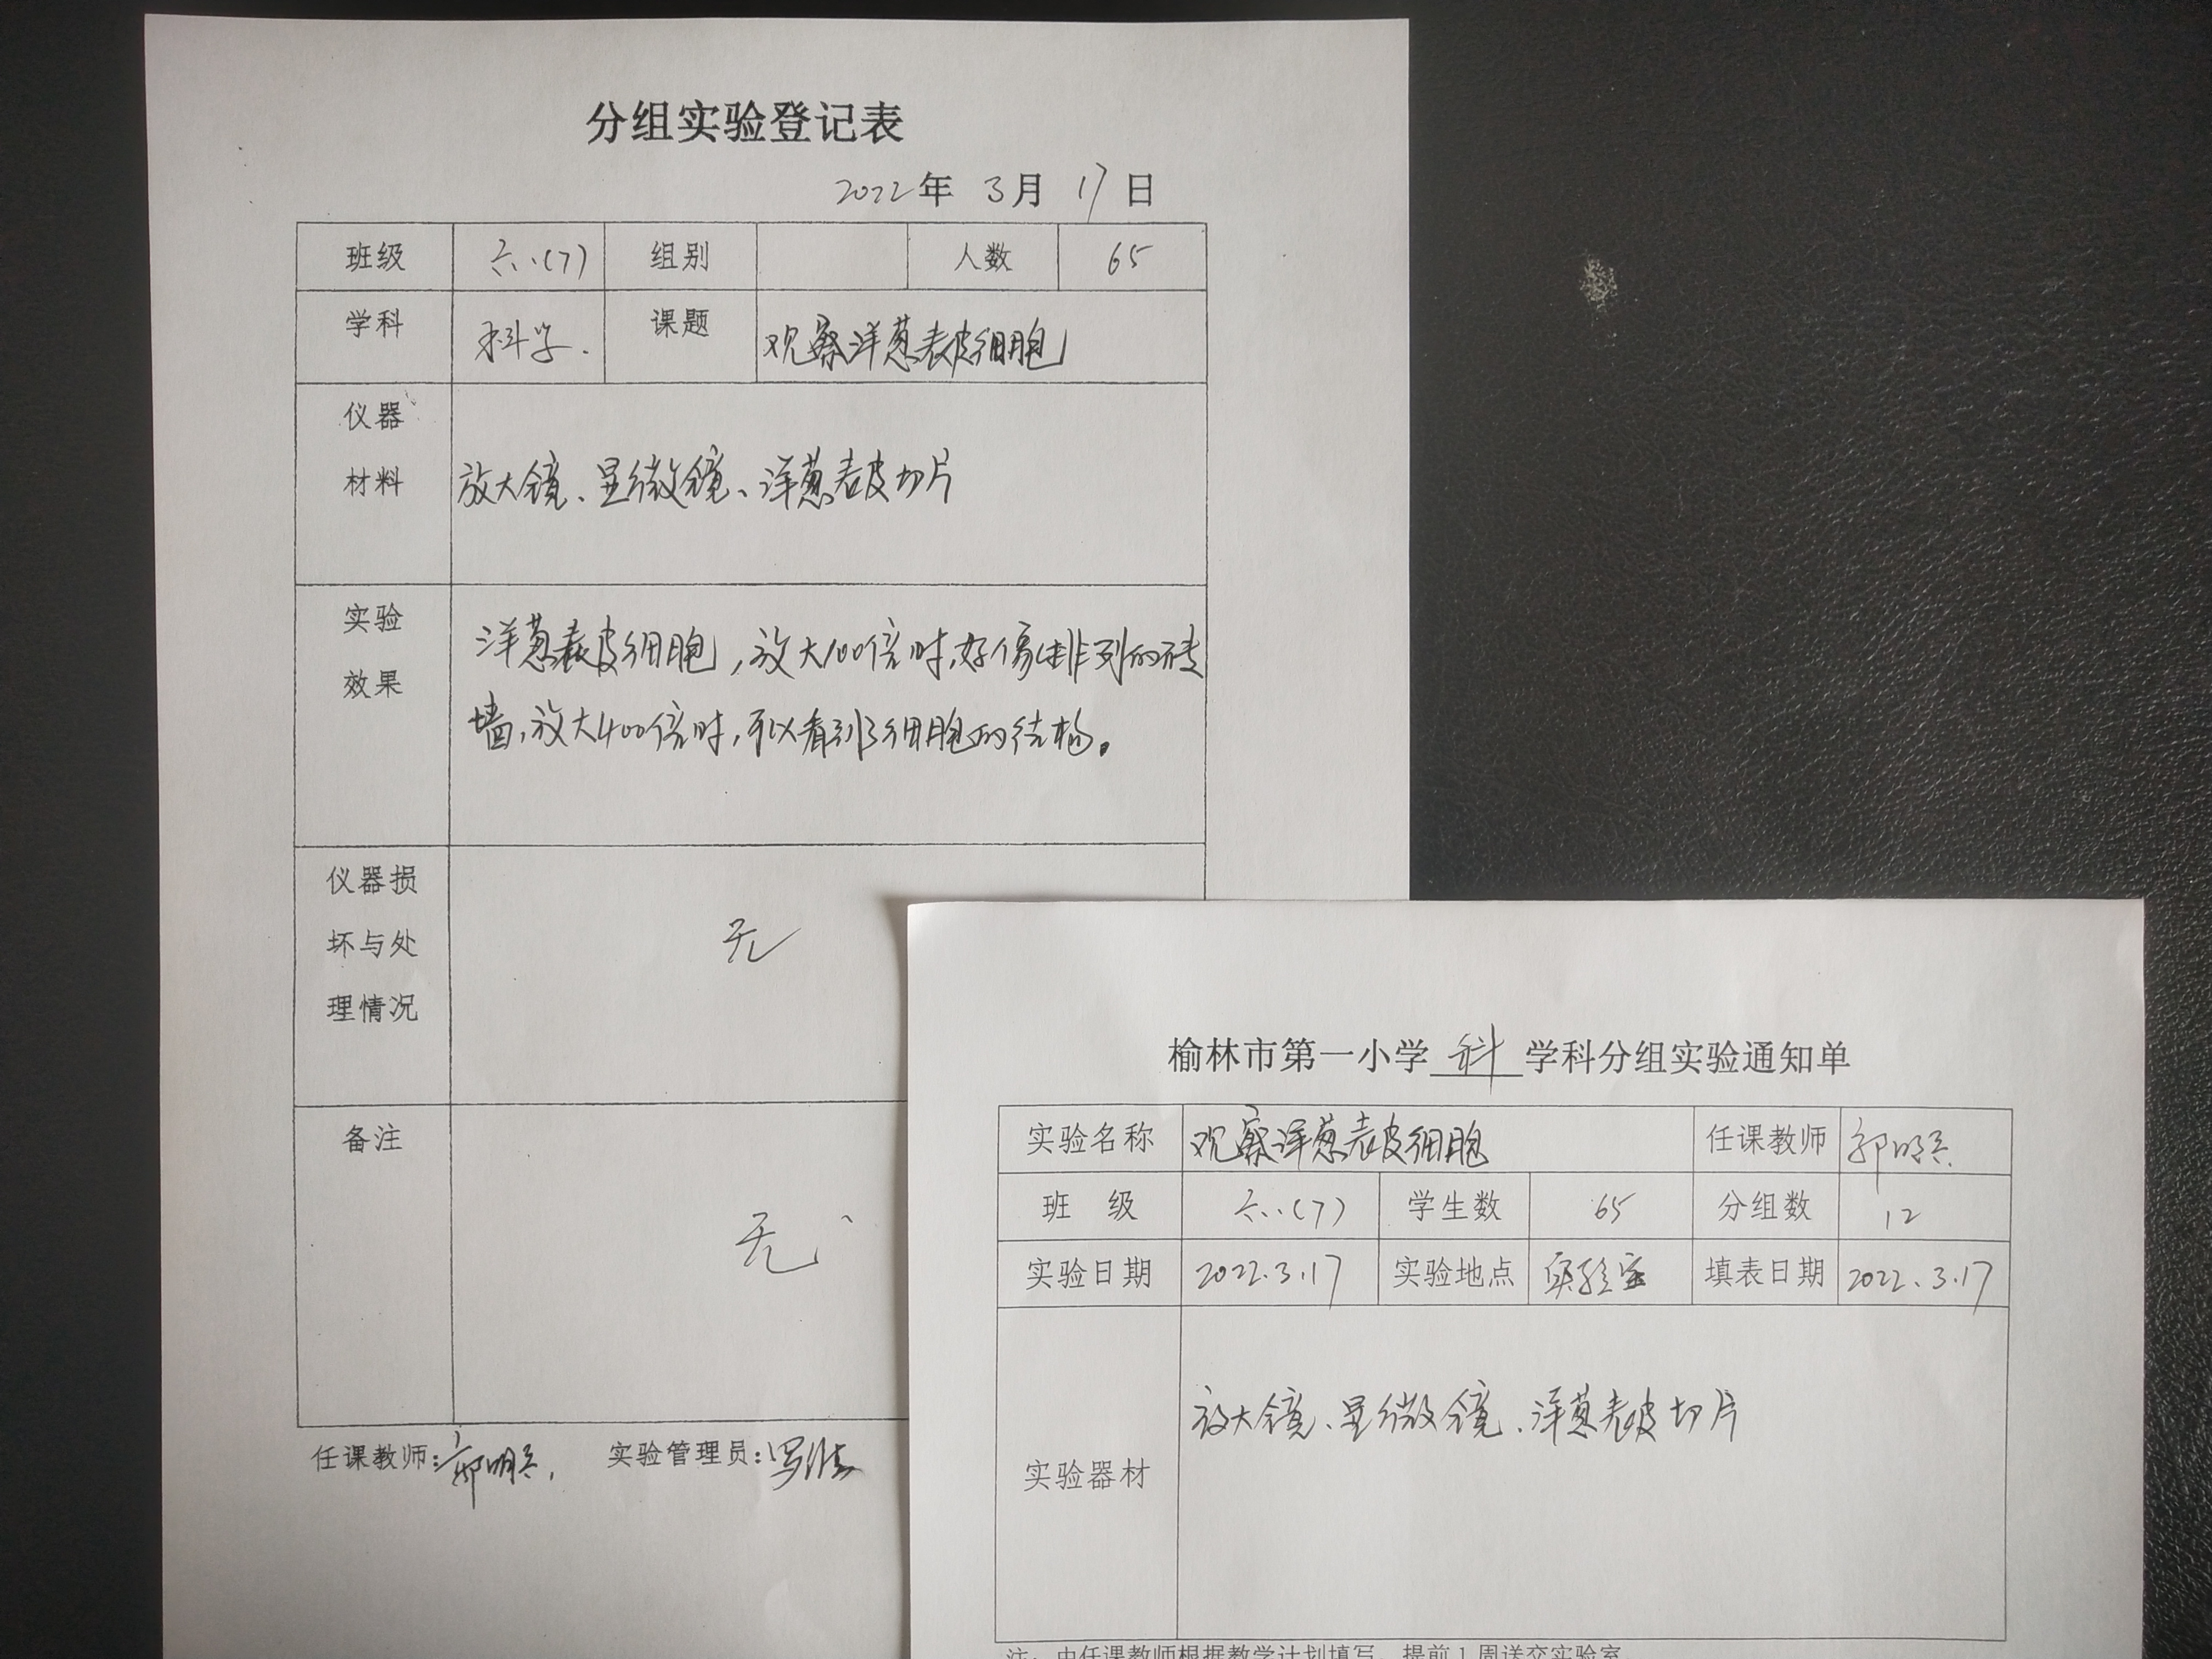 分组实验登记表
2022年 3月 17日
班级 六.(7) 组别 人数 65
学科 科学. 课题 观察洋葱表皮细胞
仪器
材料 放大镜、显微镜、洋葱表皮切片
实验
效果
洋葱表皮细胞,放大100倍时,好像排列的砖
墙,放大400倍时,可以看到细胞的结构。
仪器损
坏与处
理情况
无
备注
无
任课教师: 实验管理员:
榆林市第一小学 科 学科分组实验通知单
实验名称 观察洋葱表皮细胞 任课教师
班 级 六.(7) 学生数 65 分组数 12
实验日期 2022.3.17 实验地点 实验室 填表日期 2022.3.17
实验器材 放大镜、显微镜、洋葱表皮切片
注:由任课教师根据教学计划填写,提前1周送交实验室